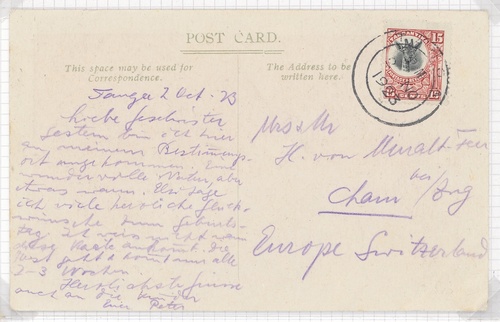 POST CARD.
This space may be used for
Correspondence.
The Address to be
written here.
15
Tanga 2 Oct. 23
Liebe Geschwister
Gestern bin ich hier
an meinem Bestimmungs-
ort angekommen. Eine
wundervolle Natur, aber
etwas warm. Elsi sage
ich viele herzliche Glück-
wünsche zum Geburts-
tag. Ich weiss nicht wann
diese Karte ankommt. die
Post geht & kommt nur alle
2-3 Wochen.
Herzlichste Grüsse
auch an die Kinder
Euer Peter
Mrs & Mr
H. von Muralt
bei / Zug
Cham
Europe Switzerland